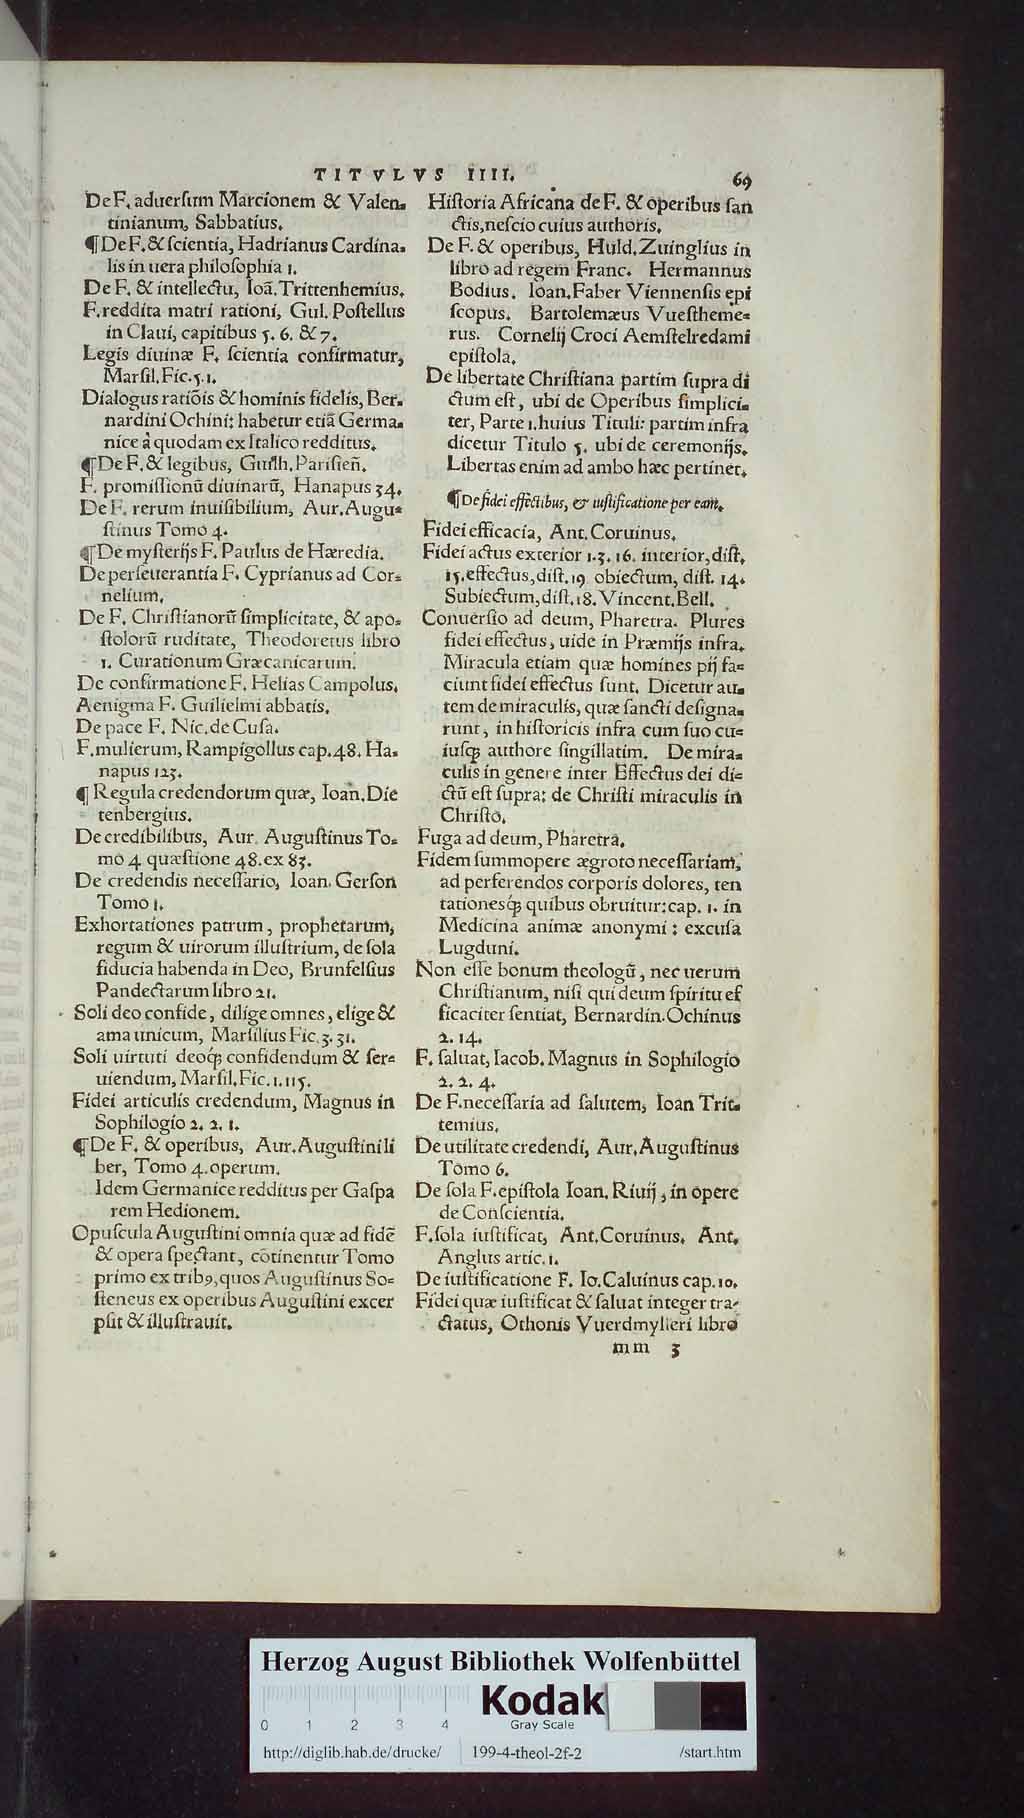 TITVLVS IIII.
69
De F. aduerſum Marcionem & Valen⸗
tinianum, Sabbatius.
¶ De F. & ſcientia, Hadrianus Cardina⸗
lis in uera philoſophia 1.
De F. & intellectu, Ioā. Trittenhemius.
F. reddita matri rationi, Gul. Poſtellus
in Claui, capitibus 5. 6. & 7.
Legis diuinæ F. ſcientia confirmatur,
Marſil. Fic. 5. 1.
Dialogus ratiōis & hominis fidelis, Ber⸗
nardini Ochini: habetur etiā Germa⸗
nice à quodam ex Italico redditus.
¶ De F. & legibus, Guilh. Pariſieñ.
F. promiſſionũ diuinarũ, Hanapus 34.
De F. rerum inuiſibilium, Aur. Augu⸗
ſtinus Tomo 4.
¶ De myſterijs F. Paulus de Hæredia.
De perſeuerantia F. Cyprianus ad Cor⸗
nelium.
De F. Chriſtianorũ ſimplicitate, & apo⸗
ſtolorũ ruditate, Theodoretus libro
1. Curationum Græcanicarum.
De confirmatione F. Helias Campolus.
Aenigma F. Guilielmi abbatis.
De pace F. Nic. de Cuſa.
F. mulierum, Rampigollus cap. 48. Ha⸗
napus 123.
¶ Regula credendorum quæ, Ioan. Die
tenbergius.
De credibilibus, Aur. Auguſtinus To⸗
mo 4. quæſtione 48. ex 83.
De credendis neceſſario, Ioan. Gerſon
Tomo 1.
Exhortationes patrum, prophetarum,
regum & uirorum illuſtrium, de ſola
fiducia habenda in Deo, Brunfelſius
Pandectarum libro 21.
Soli deo confide, dilige omnes, elige &
ama unicum, Marſilius Fic. 3. 31.
Soli uirtuti deoq́ꝫ confidendum & ſer⸗
uiendum, Marſil. Fic. 1. 115.
Fidei articulis credendum, Magnus in
Sophilogio 2. 2. 1.
¶ De F. & operibus, Aur. Auguſtini li
ber, Tomo 4. operum.
Idem Germanice redditus per Gaſpa
rem Hedionem.
Opuſcula Auguſtini omnia quæ ad fidẽ
& opera ſpectant, cōtinentur Tomo
primo ex tribꝰ, quos Auguſtinus So⸗
ſteneus ex operibus Auguſtini excer
pſit & illuſtrauit.
Hiſtoria Africana de F. & operibus ſan
ctis, neſcio cuius authoris.
De F. & operibus, Huld. Zuinglius in
libro ad regem Franc. Hermannus
Bodius. Ioan. Faber Viennenſis epi
ſcopus. Bartolemæus Vueſtheme⸗
rus. Cornelij Croci Aemſtelredami
epiſtola.
De libertate Chriſtiana partim ſupra di
ctum eſt, ubi de Operibus ſimplici⸗
ter, Parte 1. huius Tituli: partim infra
dicetur Titulo 5. ubi de ceremonijs.
Libertas enim ad ambo hæc pertinet.
¶ De fidei effectibus, & iuſtificatione per eam.
Fidei efficacia, Ant. Coruinus.
Fidei actus exterior 1. 3. 16. interior, diſt.
15. effectus, diſt. 19. obiectum, diſt. 14.
Subiectum, diſt. 18. Vincent. Bell.
Conuerſio ad deum, Pharetra. Plures
fidei effectus, uide in Præmijs infra.
Miracula etiam quæ homines pij fa⸗
ciunt fidei effectus ſunt. Dicetur au⸗
tem de miraculis, quæ ſancti deſigna⸗
runt, in hiſtoricis infra cum ſuo cu⸗
iuſqꝫ authore ſingillatim. De mira⸗
culis in genere inter Effectus dei di⸗
ctũ eſt ſupra: de Chriſti miraculis in
Chriſto.
Fuga ad deum, Pharetra.
Fidem ſummopere ægroto neceſſariam,
ad perferendos corporis dolores, ten
tationesq́ꝫ quibus obruitur: cap. 1. in
Medicina animæ anonymi: excuſa
Lugduni.
Non eſſe bonum theologũ, nec uerum
Chriſtianum, niſi qui deum ſpiritu ef
ficaciter ſentiat, Bernardin. Ochinus
2. 14.
F. ſaluat, Iacob. Magnus in Sophilogio
2. 2. 4.
De F. neceſſaria ad ſalutem, Ioan Trit⸗
temius.
De utilitate credendi, Aur. Auguſtinus
Tomo 6.
De ſola F. epiſtola Ioan. Riuij, in opere
de Conſcientia.
F. ſola iuſtificat, Ant. Coruinus. Ant.
Anglus artic. 1.
De iuſtificatione F. Io. Caluinus cap. 10.
Fidei quæ iuſtificat & ſaluat integer tra⸗
ctatus, Othonis Vuerdmylleri libro
mm 3
Herzog August Bibliothek Wolfenbüttel
Kodak
Gray Scale
0 1 2 3 4
http://diglib.hab.de/drucke/ 199-4-theol-2f-2 /start.htm